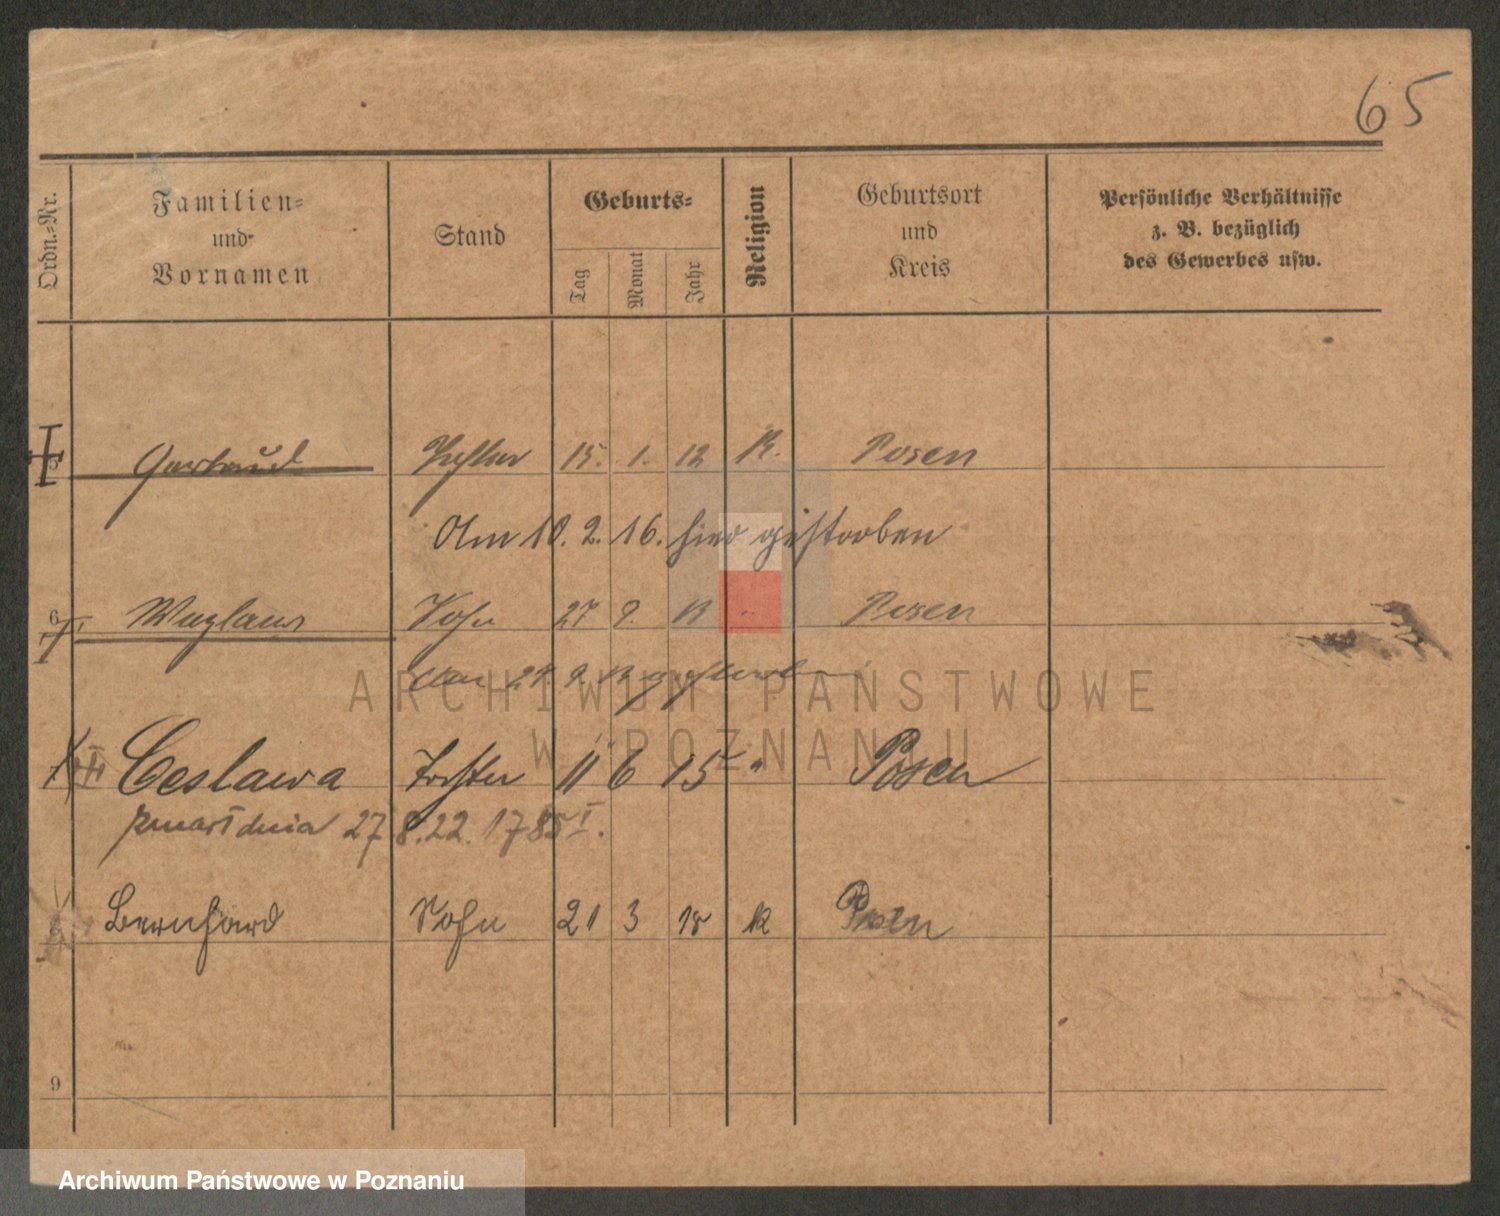 65
Ordn.-Nr.
Familien-
und
Vornamen
Stand
Geburts-
Tag
Monat
Jahr
Religion
Geburtsort
und
Kreis
Persönliche Verhältnisse
z. B. bezüglich
des Gewerbes usw.
Gertrud Tochter 15. 1. 12 K. Posen
Am 10. 2. 16. hier gestorben
6 Wazlaus Sohn 27 9. 13 " Posen
ARCHIWUM PAŃSTWOWE
W POZNANIU
Ceslawa Tochter 11 6 15 " Posen
zmarł dnia 27 8. 22. 1785 I.
Bernhard Sohn 21 3 18 K Posen
9
Archiwum Państwowe w Poznaniu